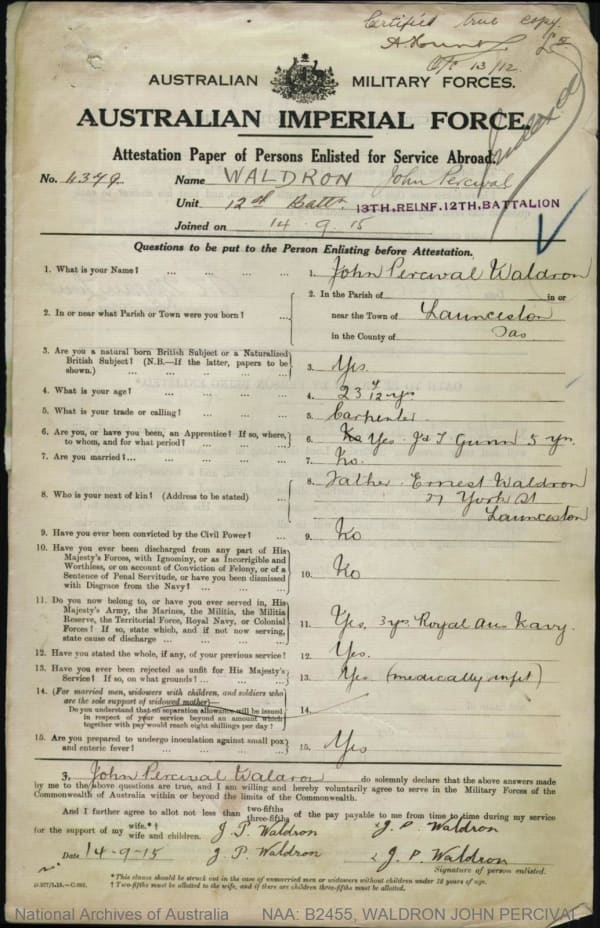 Certified true copy.
13/12
AUSTRALIAN MILITARY FORCES.
AUSTRALIAN IMPERIAL FORCE.
Attestation Paper of Persons Enlisted for Service Abroad.
No. 4379 Name WALDRON John Percival
Unit 12th Battn 13TH, REINF. 12TH, BATTALION
Joined on 14 . 9 . 15
Questions to be put to the Person Enlisting before Attestation.
1. What is your Name? ... ... ... ... 1. John Percival Waldron
2. In the Parish of in or
2. In or near what Parish or Town were you born? ... near the Town of Launceston
in the County of Tas
3. Are you a natural born British Subject or a Naturalized
British Subject? (N.B.—If the latter, papers to be
shown.) ... ... ... ... 3. Yes.
4. What is your age? ... ... ... ... 4. 23
5. What is your trade or calling? ... ... ... 5. Carpenter.
6. Are you, or have you been, an Apprentice? If so, where,
to whom, and for what period? ... ... ... 6. No Yes J & T Gunn 5 yrs.
7. Are you married? ... ... ... ... 7. No.
8. Father Ernest Waldron
8. Who is your next of kin? (Address to be stated) ... York St
Launceston
9. Have you ever been convicted by the Civil Power? ... 9. No
10. Have you ever been discharged from any part of His
Majesty's Forces, with Ignominy, or as Incorrigible and
Worthless, or on account of Conviction of Felony, or of a
Sentence of Penal Servitude, or have you been dismissed
with Disgrace from the Navy? ... ... ... 10. No
11. Do you now belong to, or have you ever served in, His
Majesty's Army, the Marines, the Militia, the Militia
Reserve, the Territorial Force, Royal Navy, or Colonial
Forces? If so, state which, and if not now serving,
state cause of discharge ... ... ... 11. Yes, 3 yrs Royal Aus Navy.
12. Have you stated the whole, if any, of your previous service? 12. Yes.
13. Have you ever been rejected as unfit for His Majesty's
Service? If so, on what grounds? ... ... ... 13. Yes (medically unfit)
14. (For married men, widowers with children, and soldiers who
are the sole support of widowed mother)—
Do you understand that no separation allowance will be issued
in respect of your service beyond an amount which
together with pay would reach eight shillings per day? ... 14.
15. Are you prepared to undergo inoculation against small pox
and enteric fever? ... ... ... ... 15. Yes
I, John Percival Waldron do solemnly declare that the above answers made
by me to the above questions are true, and I am willing and hereby voluntarily agree to serve in the Military Forces of the
Commonwealth of Australia within or beyond the limits of the Commonwealth.
And I further agree to allot not less than two-fifths three-fifths of the pay payable to me from time to time during my service
for the support of my wife.*† wife and children. J. P. Waldron J. P. Waldron
Date 14-9-15 J. P. Waldron J. P. Waldron
Signature of person enlisted.
*This clause should be struck out in the case of unmarried men or widowers without children under 18 years of age.
† Two-fifths must be allotted to the wife, and if there are children three-fifths must be allotted.
National Archives of Australia NAA: B2455, WALDRON JOHN PERCIVAL